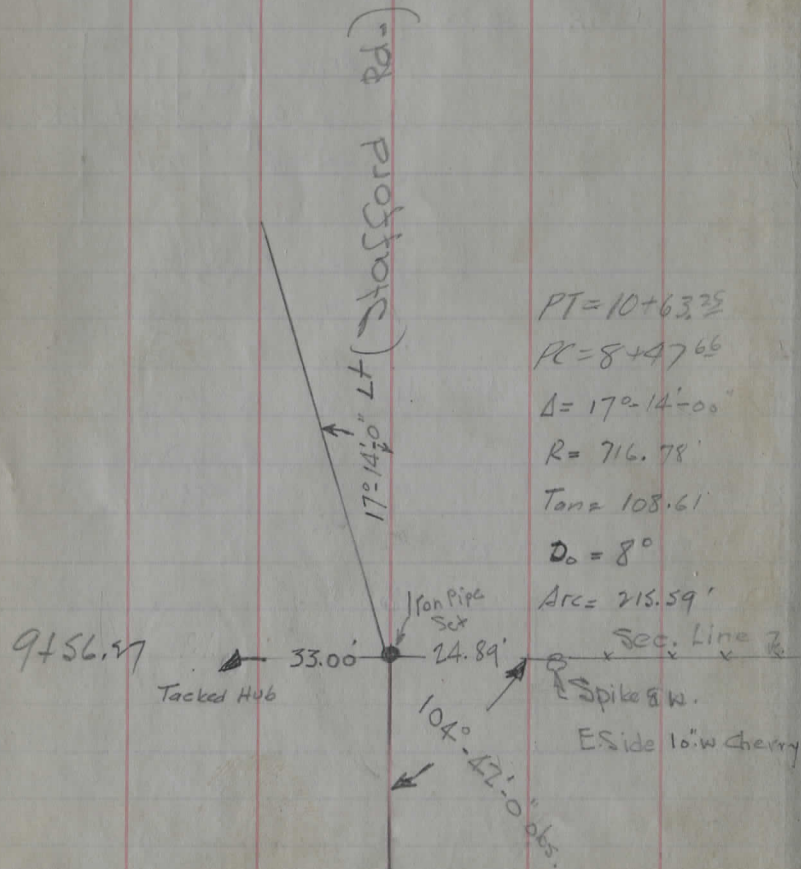 (Stafford Rd.)
17°-14'-0" Lt
PT = 10+63.25
PC = 8+47 66
Δ = 17°-14'-00"
R = 716.78'
Tan = 108.61'
Do = 8°
Arc = 215.59'
Iron Pipe
Set
Sec. Line
9+56.27
33.00'
24.89'
Tacked Hub
Spike & w.
E. Side 10" W Cherry
104°-42'-0" obs.